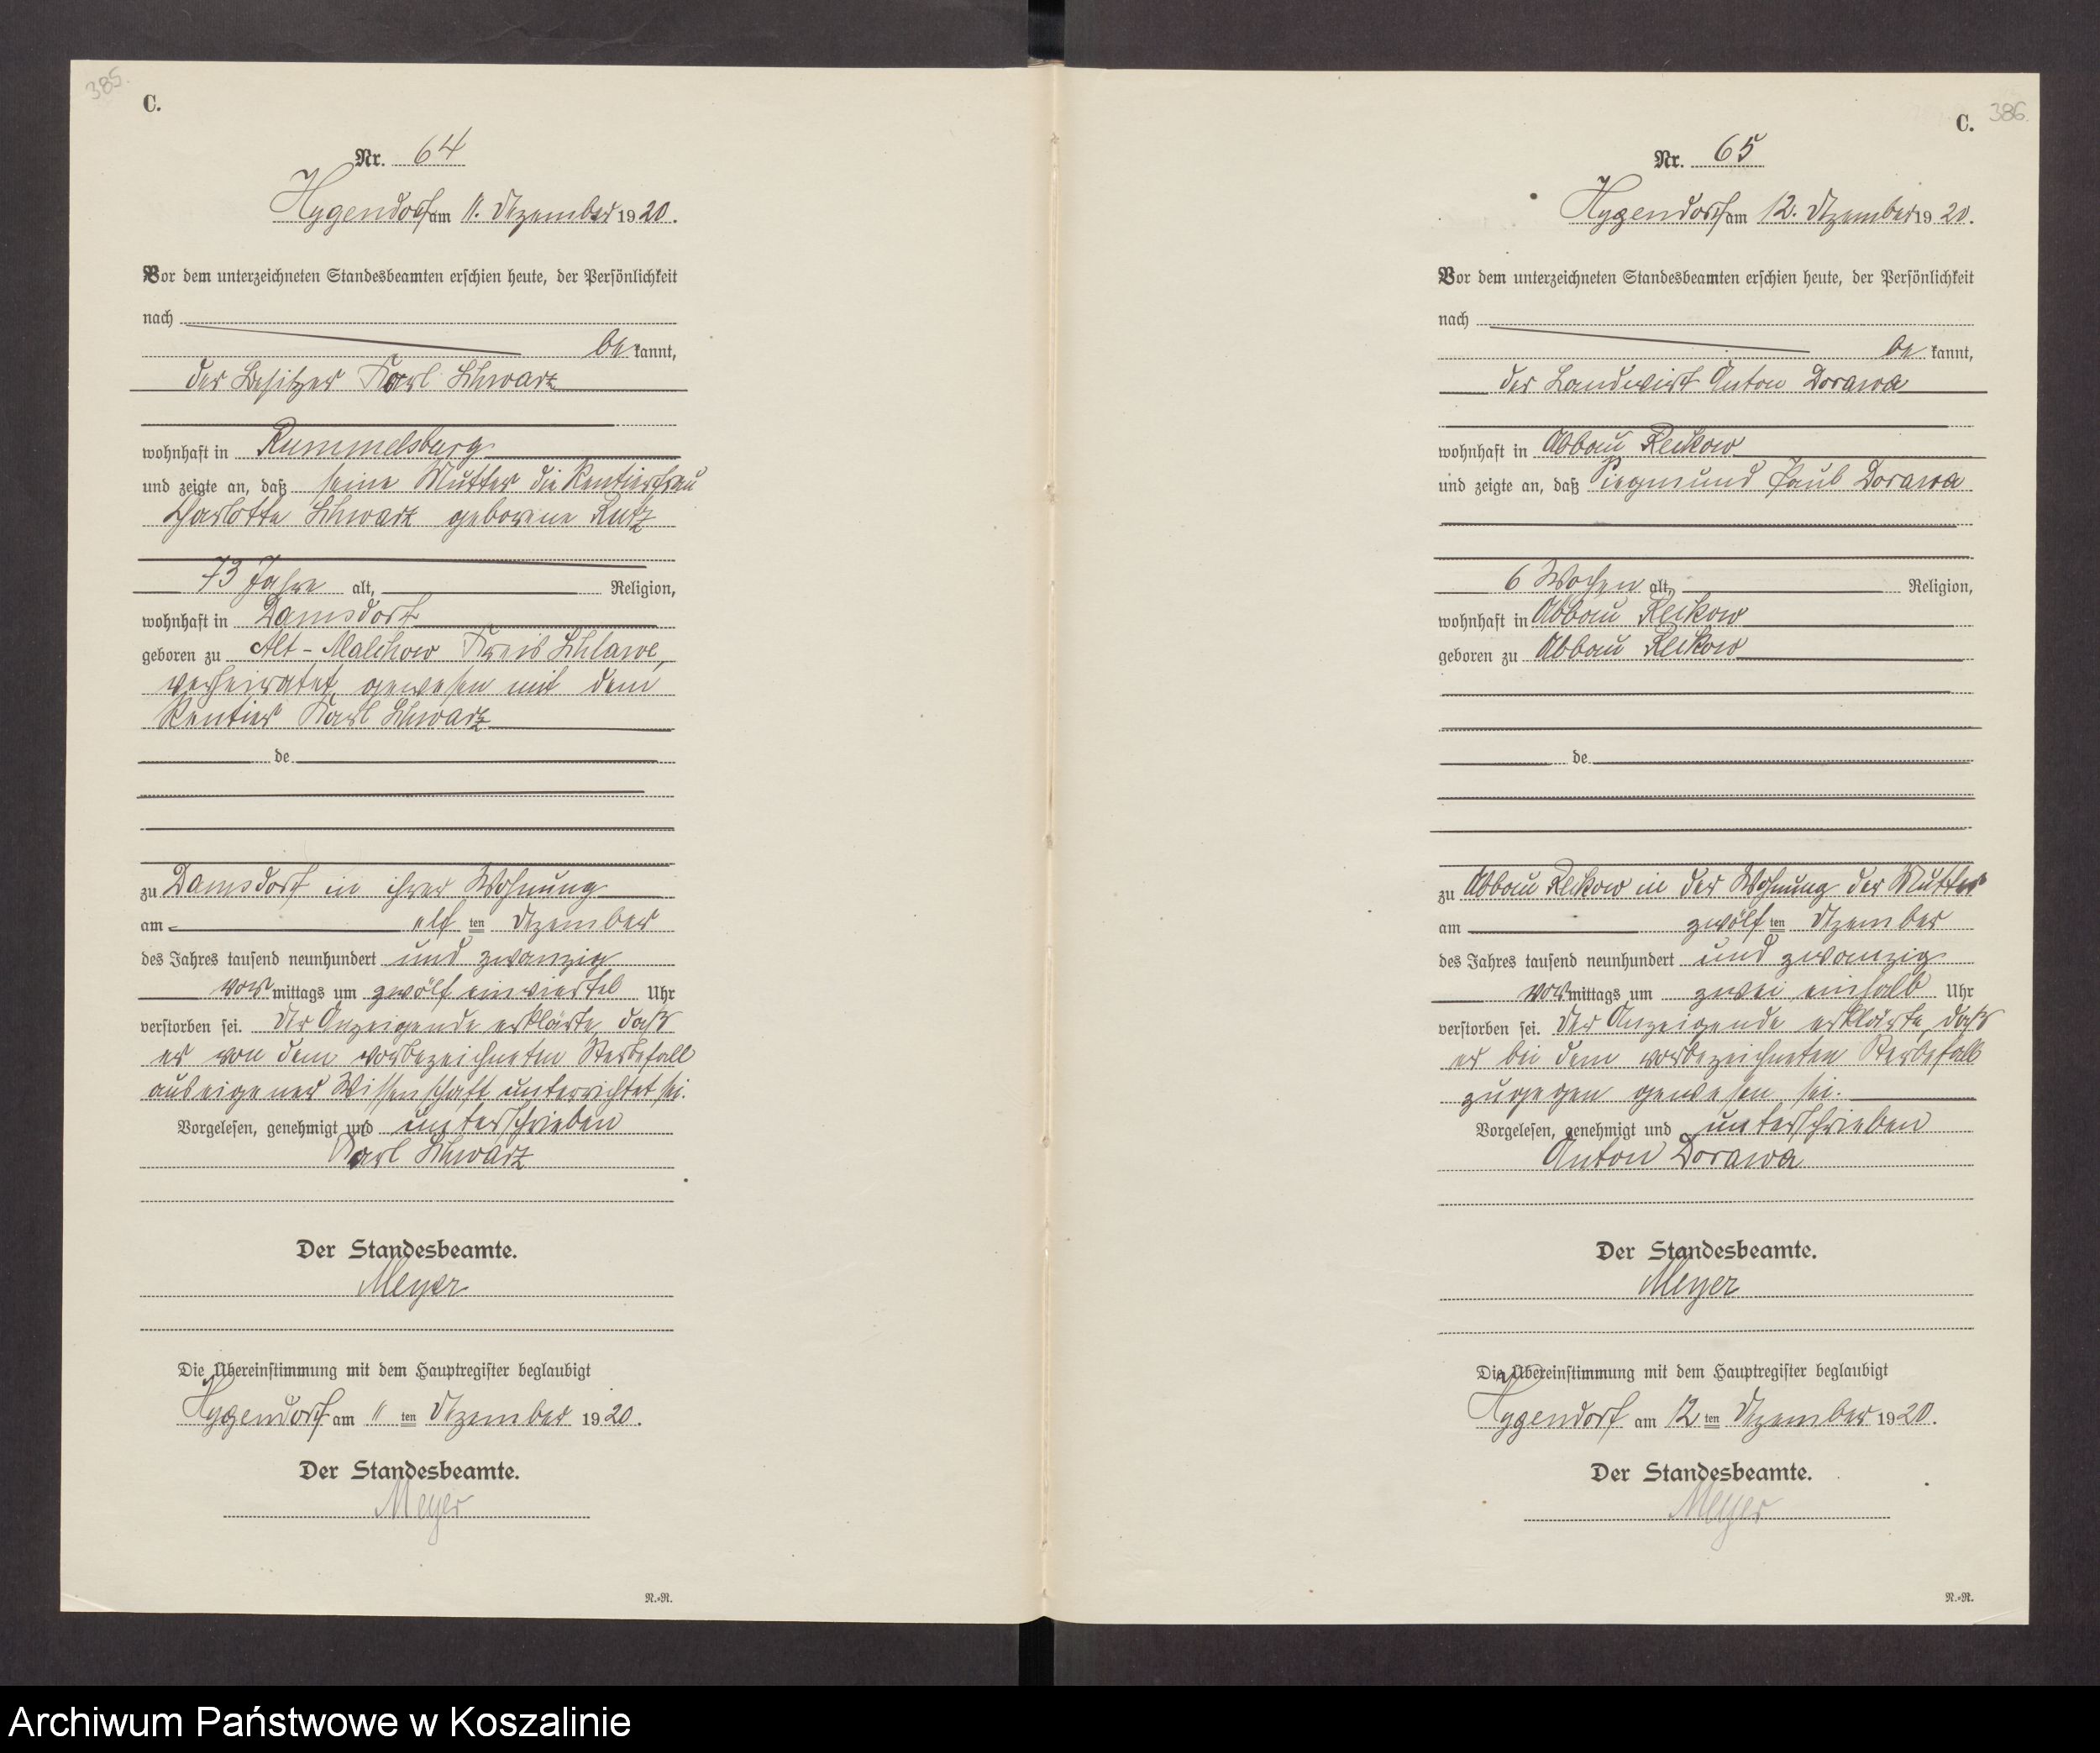 385.
C.
Nr. 64
Hygendorf am 11. Dezember 1920.
Vor dem unterzeichneten Standesbeamten erschien heute, der Persönlichkeit
nach
be kannt,
der Besitzer Karl Schwarz
wohnhaft in Rummelsburg
und zeigte an, daß seine Mutter die Rentierfrau
Charlotte Schwarz geborene Rutz
73 Jahre alt, Religion,
wohnhaft in Damsdorf
geboren zu Alt-Malchow Kreis Schlawe,
verheiratet gewesen mit dem
Rentier Karl Schwarz
de
zu Damsdorf in ihrer Wohnung
am elf ten Dezember
des Jahres tausend neunhundert und zwanzig
vor mittags um zwölf einviertel Uhr
verstorben sei. Der Anzeigende erklärte, daß
er von dem vorbezeichneten Sterbefall
aus eigener Wissenschaft unterrichtet sei.
Vorgelesen, genehmigt und unterschrieben
Karl Schwarz
Der Standesbeamte.
Meyer
Die Übereinstimmung mit dem Hauptregister beglaubigt
Hygendorf am 11 ten Dezember 1920.
Der Standesbeamte.
Meyer
N.=N.
386.
C.
Nr. 65
Hygendorf am 12. Dezember 1920.
Vor dem unterzeichneten Standesbeamten erschien heute, der Persönlichkeit
nach
be kannt,
der Landwirt Anton Dorawa
wohnhaft in Abbau Reckow
und zeigte an, daß Siegmund Paul Dorawa
6 Wochen alt, Religion,
wohnhaft in Abbau Reckow
geboren zu Abbau Reckow
de
zu Abbau Reckow in der Wohnung der Mutter
am zwölf ten Dezember
des Jahres tausend neunhundert und zwanzig
vor mittags um zwei einhalb Uhr
verstorben sei. Der Anzeigende erklärte, daß
er bei dem vorbezeichneten Sterbefall
zugegen gewesen sei.
Vorgelesen, genehmigt und unterschrieben
Anton Dorawa
Der Standesbeamte.
Meyer
Die Übereinstimmung mit dem Hauptregister beglaubigt
Hygendorf am 12 ten Dezember 1920.
Der Standesbeamte.
Meyer
N.=N.
Archiwum Państwowe w Koszalinie